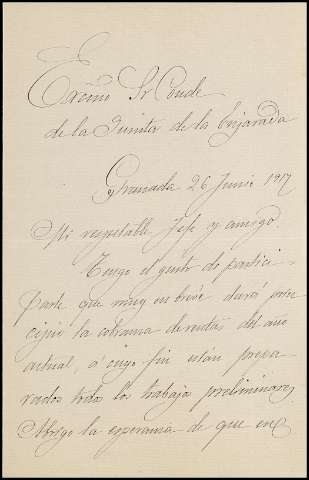 Excmo Sr Conde
de la Quinta de la Enjarada
Granada 26 Junio 1917
Mi respetable Jefe y amigo.
Tengo el gusto de partici-
parle que muy en breve dará prin
cipio la cobranza de rentas del año
actual, á cuyo fin están prepa-
rados todos los trabajos preliminares
Abrigo la esperanza de que en